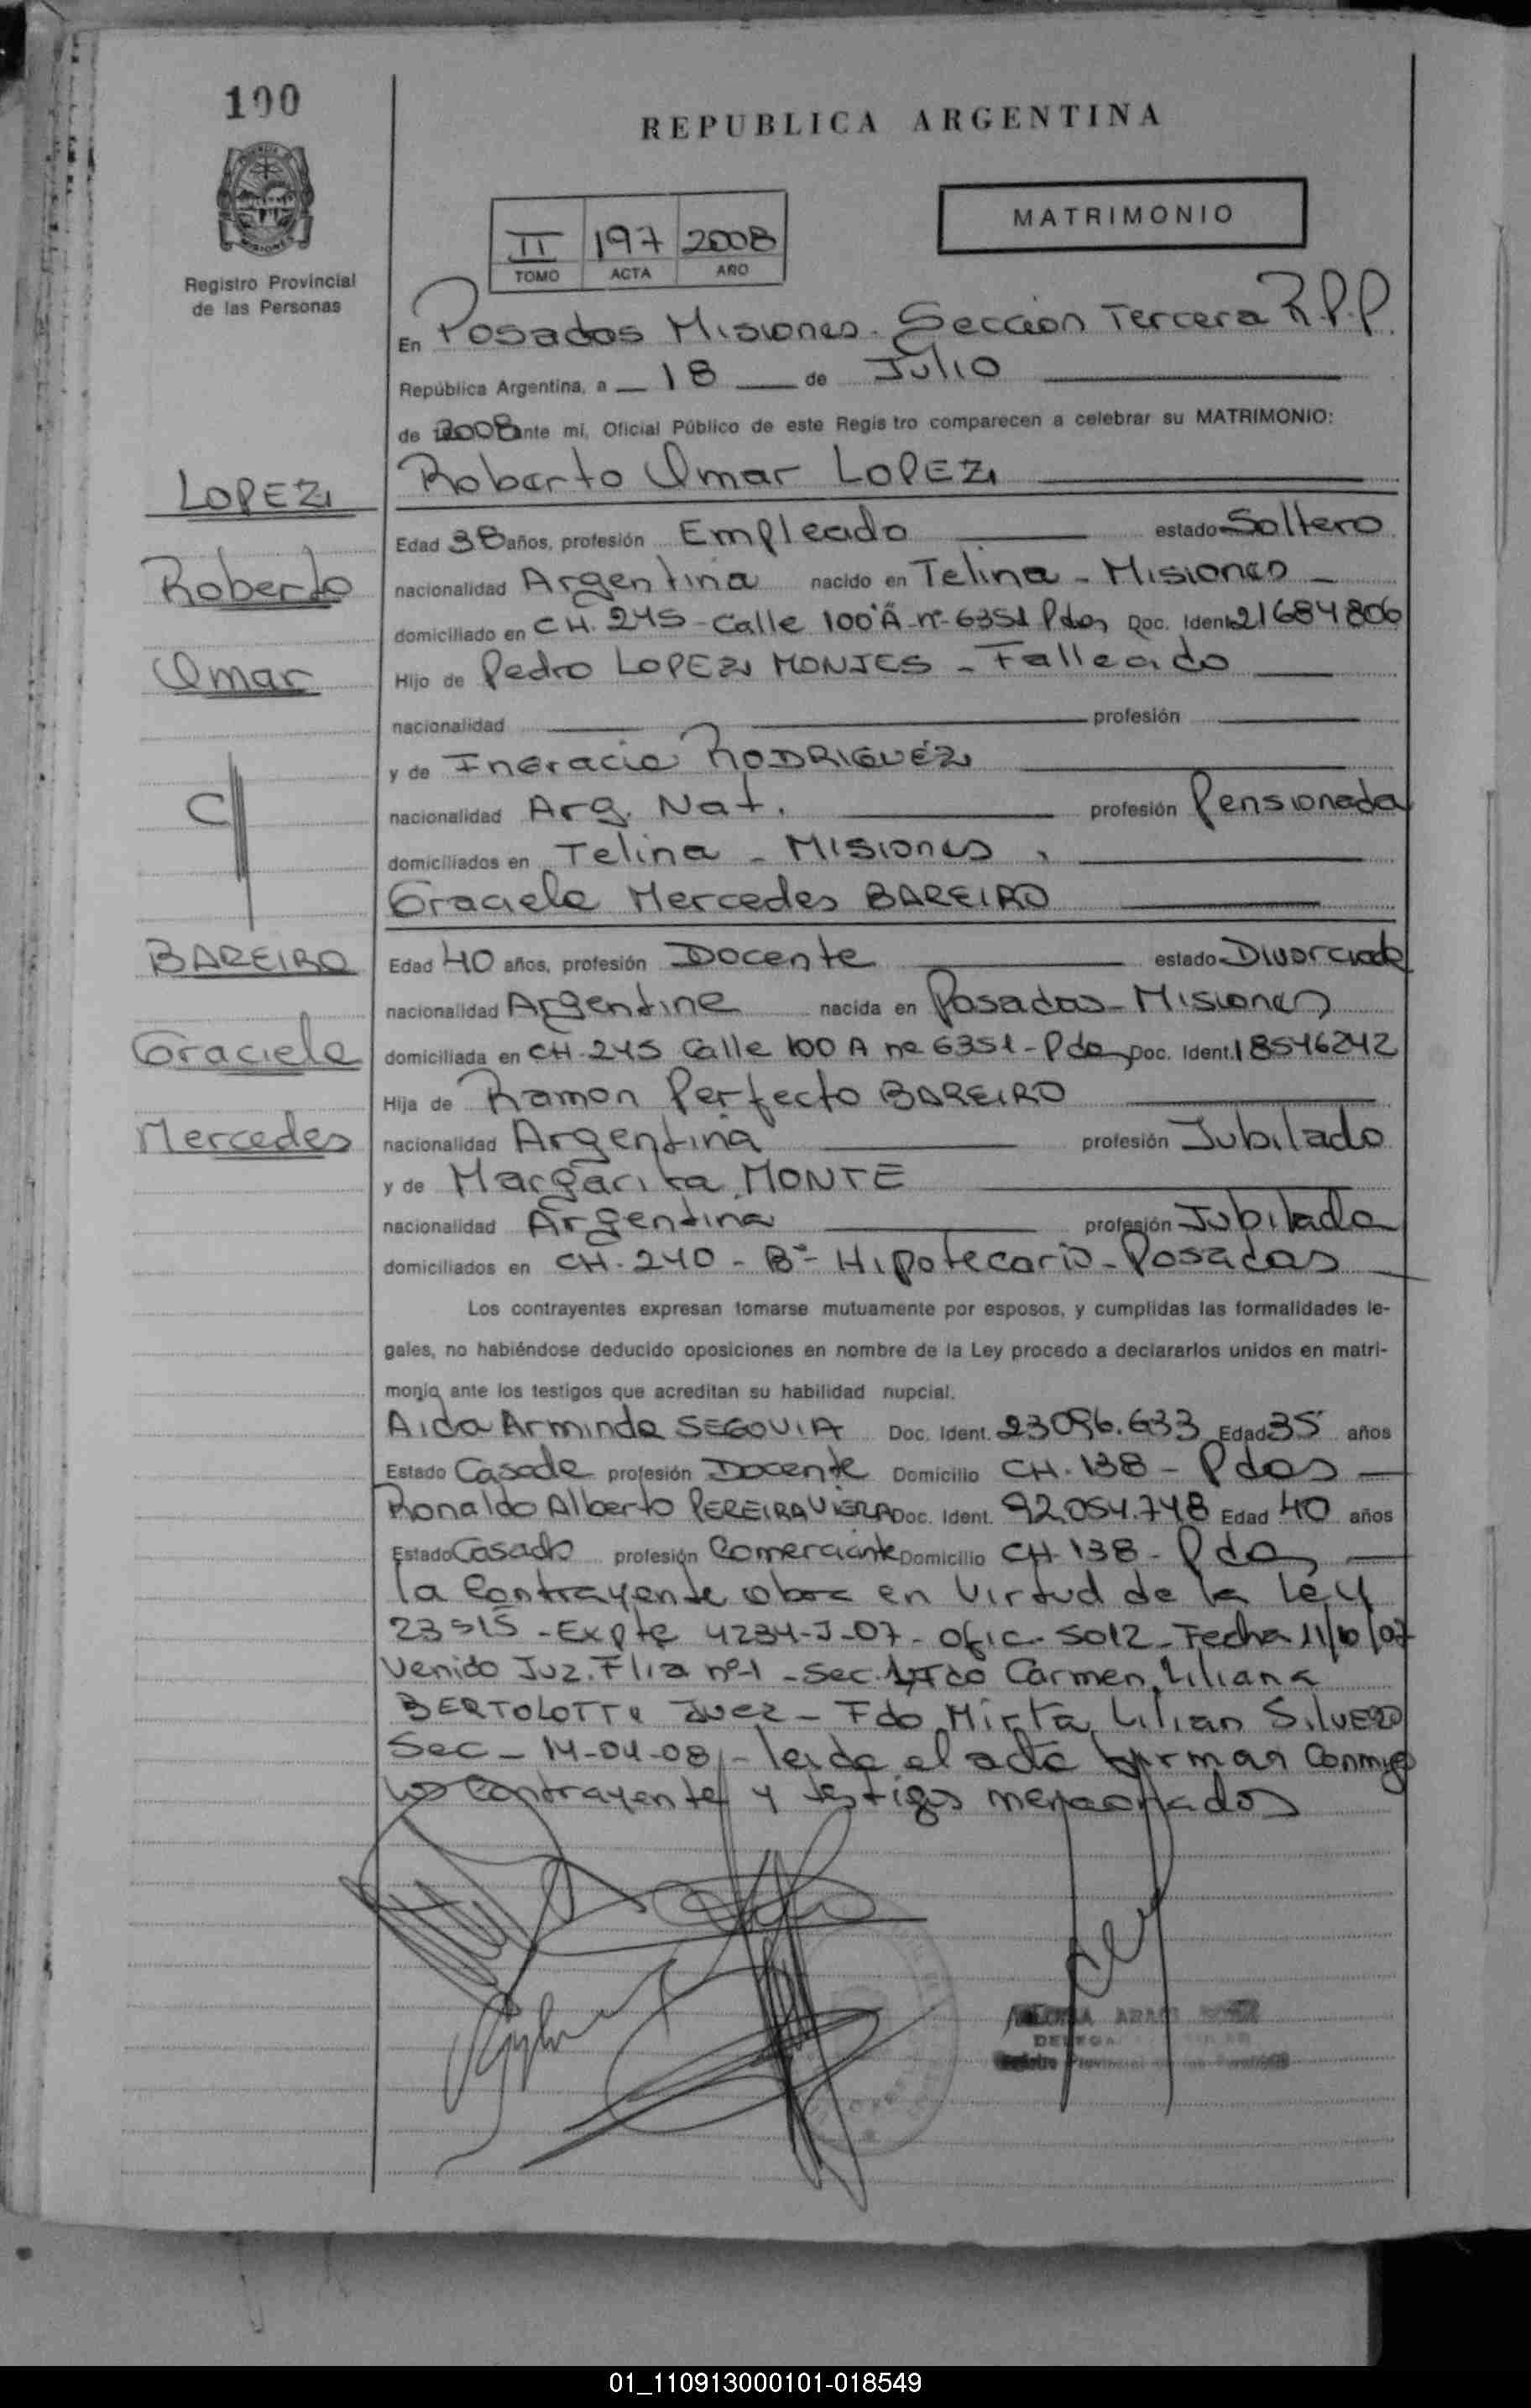 100
REPUBLICA ARGENTINA
MATRIMONIO
II 197 2008
TOMO ACTA AÑO
Registro Provincial
de las Personas
En Posadas Misiones. Sección Tercera R.P.P.
República Argentina, a 18 de Julio
de 2008 ante mí, Oficial Público de este Registro comparecen a celebrar su MATRIMONIO:
LOPEZ
Roberto Omar LOPEZ
Edad 38 años, profesión Empleado estado Soltero
Roberto
nacionalidad Argentina nacido en Telina - Misiones
domiciliado en CH. 245 - Calle 100 A - nº 6351 Pdas Doc. Ident. 21684806
Omar
Hijo de Pedro LOPEZ MONJES - Fallecido
nacionalidad profesión
y de Ingracia RODRIGUEZ
C
nacionalidad Arg. Nat. profesión Pensionada
domiciliados en Telina - Misiones
Graciela Mercedes BAREIRO
BAREIRO
Edad 40 años, profesión Docente estado Divorciada
nacionalidad Argentina nacida en Posadas - Misiones
Graciela
domiciliada en CH. 245 Calle 100 A nº 6351 - Pdas Doc. Ident. 18546242
Hija de Ramon Perfecto BAREIRO
Mercedes
nacionalidad Argentina profesión Jubilado
y de Margarita MONTE
nacionalidad Argentina profesión Jubilada
domiciliados en CH. 240 - Bº - Hipotecario - Posadas
Los contrayentes expresan tomarse mutuamente por esposos, y cumplidas las formalidades le-
gales, no habiéndose deducido oposiciones en nombre de la Ley procedo a declararlos unidos en matri-
monio ante los testigos que acreditan su habilidad nupcial.
Aida Arminda SEGOVIA Doc. Ident. 23096.633 Edad 35 años
Estado Casada profesión Docente Domicilio CH. 138 - Pdas
Ronaldo Alberto PEREIRA VIERA Doc. Ident. 92.054.748 Edad 40 años
Estado Casado profesión Comerciante Domicilio CH 138 - Pdas
la Contrayente obra en Virtud de la Ley
23515 - Expte 4234-J-07 - Ofic. 5012 - Fecha 11/10/07
Venido Juz. Flia nº 1 - Sec. Carmen Liliana
BERTOLOTTI Juez - Fdo Mirta Lilian SILVERO
Sec - 14-04-08 - leida el acta firman Conmigo
los Contrayentes y testigos mencionados
Registro Provincial de las Personas
01_110913000101-018549